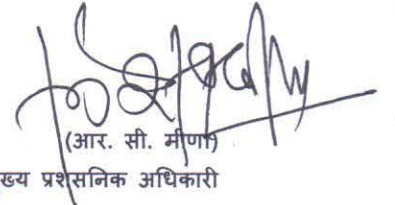 (आर. सी. मीणा)
ख्य प्रशसनिक अधिकारी